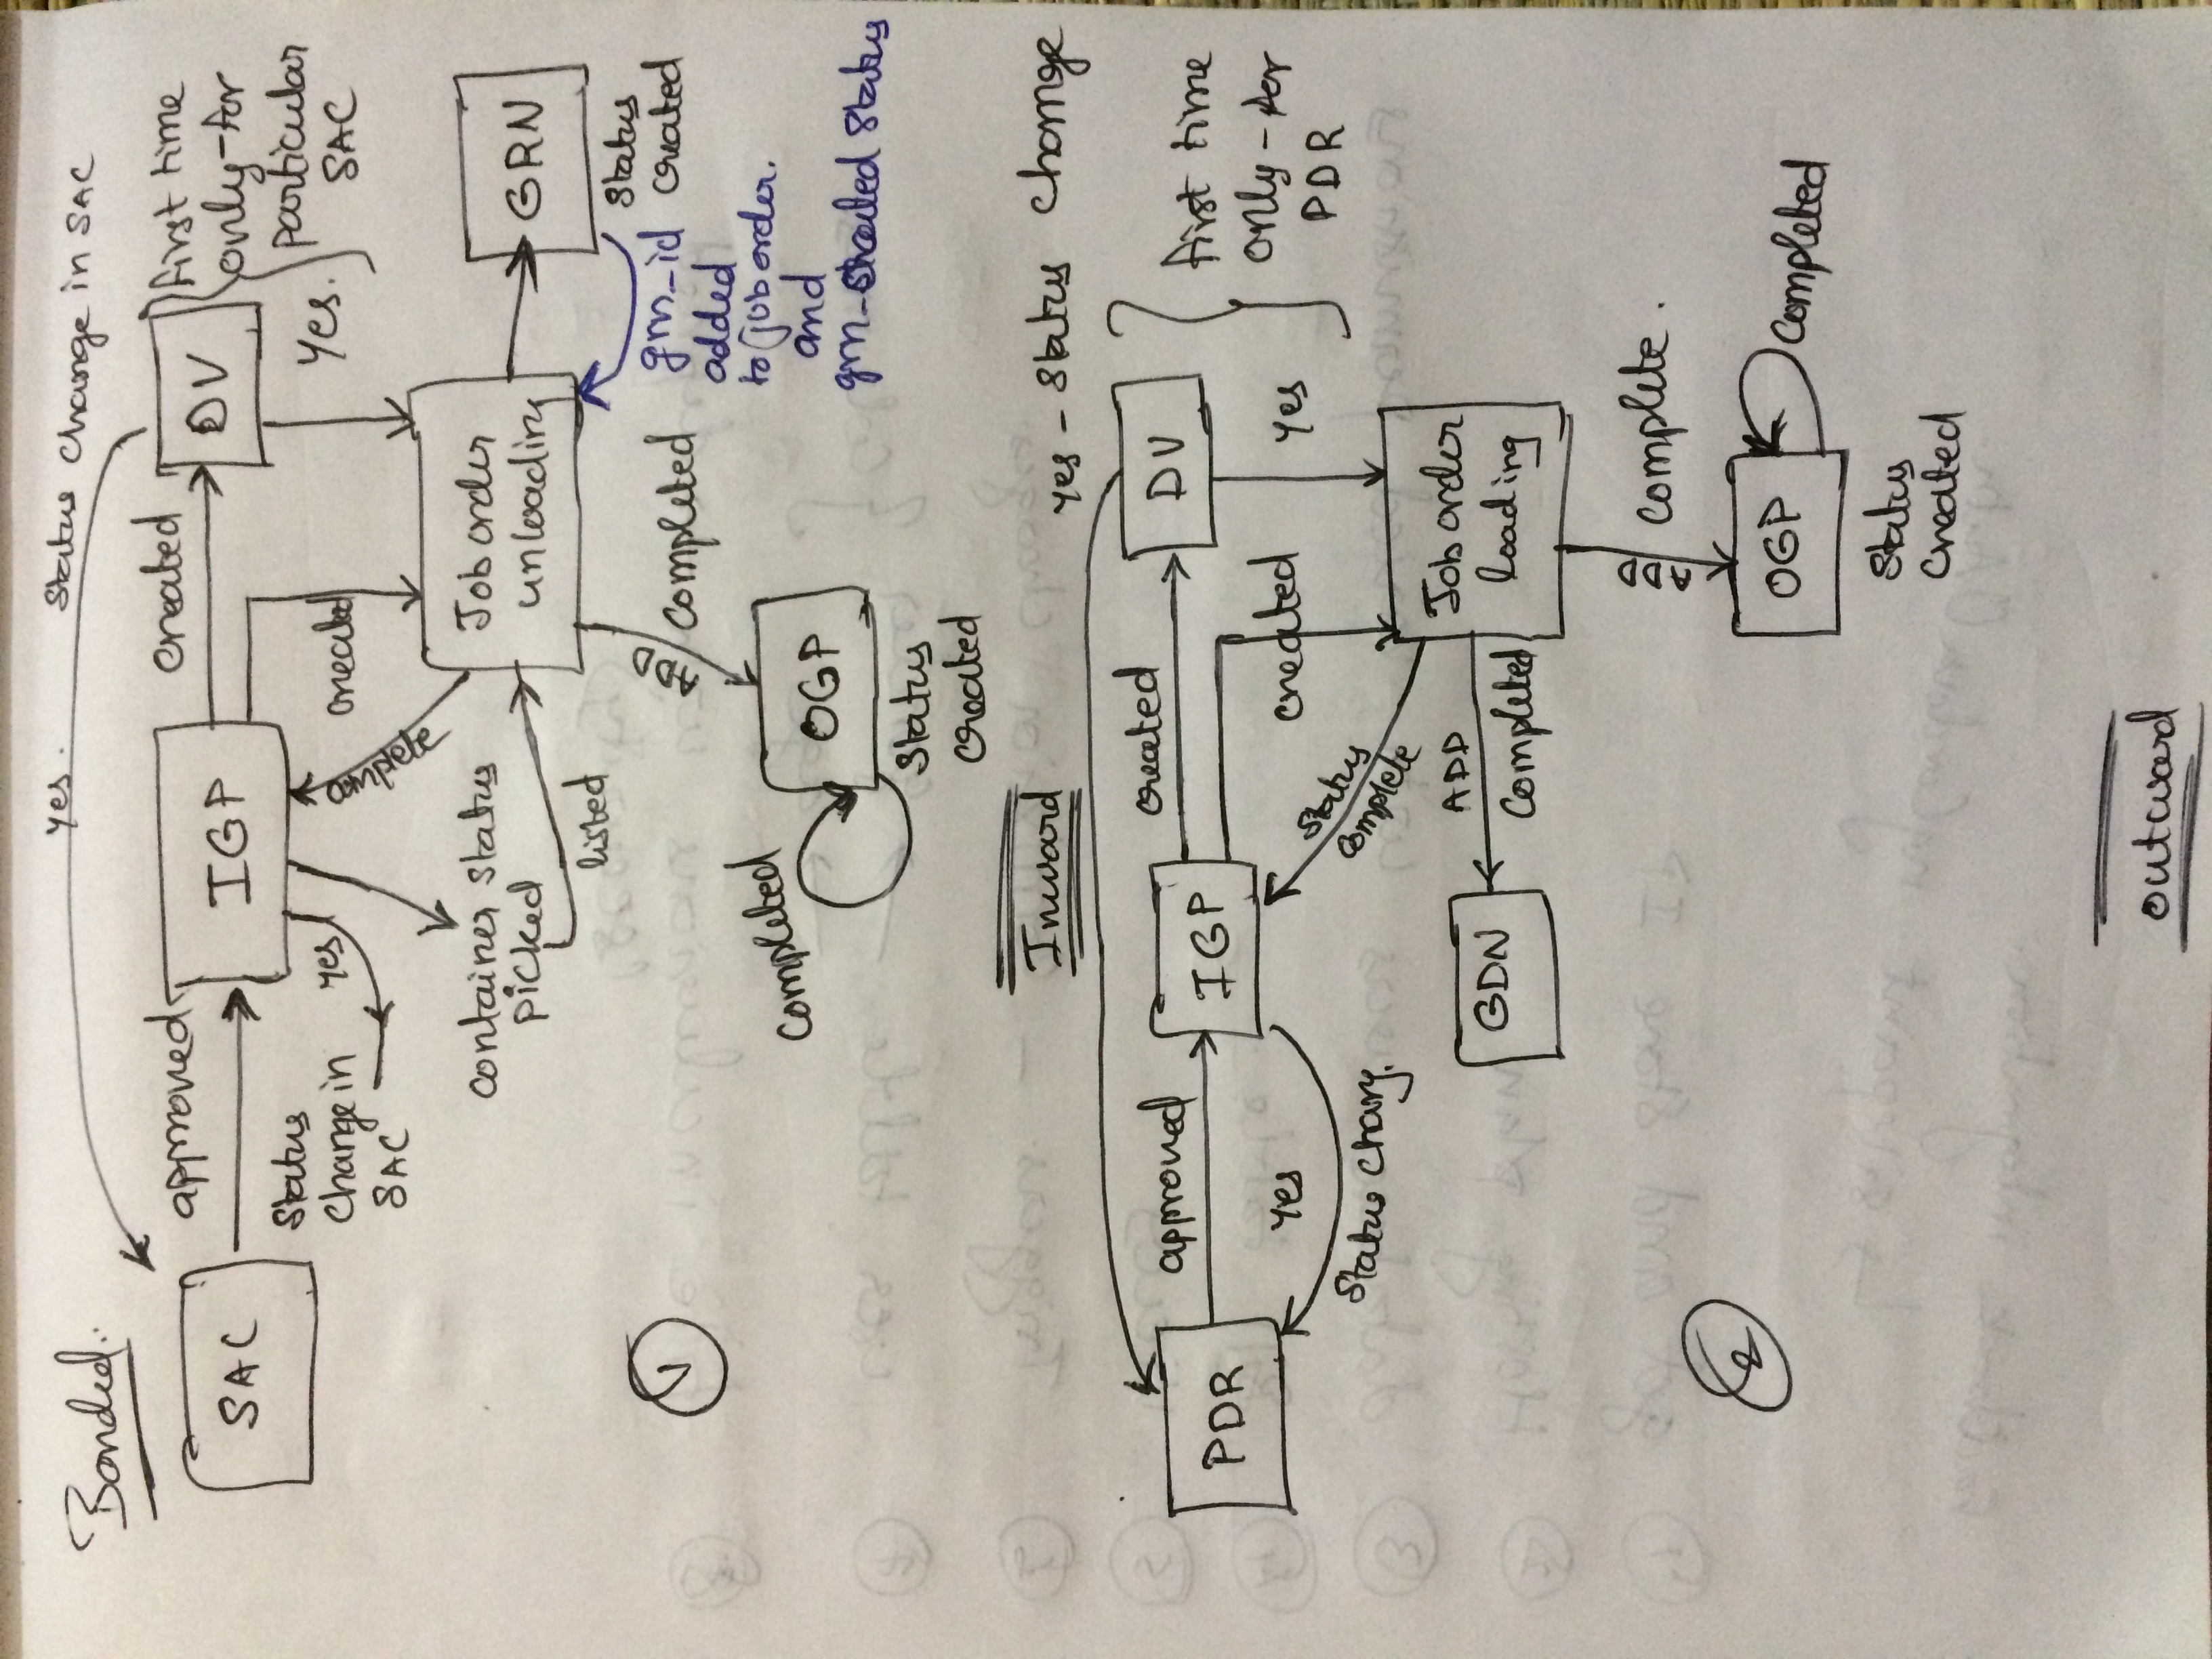 Bonded:
yes.
Status change in SAC
SAC
approved
IGP
created
DV
first time
only-for
particular
SAC
Status
change in
SAC
yes
complete
created
Yes.
container status
picked
listed
Job order
unloading
GRN
Status
created
grn_id
added
to job order.
and
1
ADD
completed
completed
OGP
Status
created
Inward
yes - status change
PDR
approved
IGP
created
DV
first time
only-for
PDR
yes
Status
complete
created
yes
GDN
ADD
completed
Job order
loading
2
ADD
complete.
OGP
completed
Status
created
outward